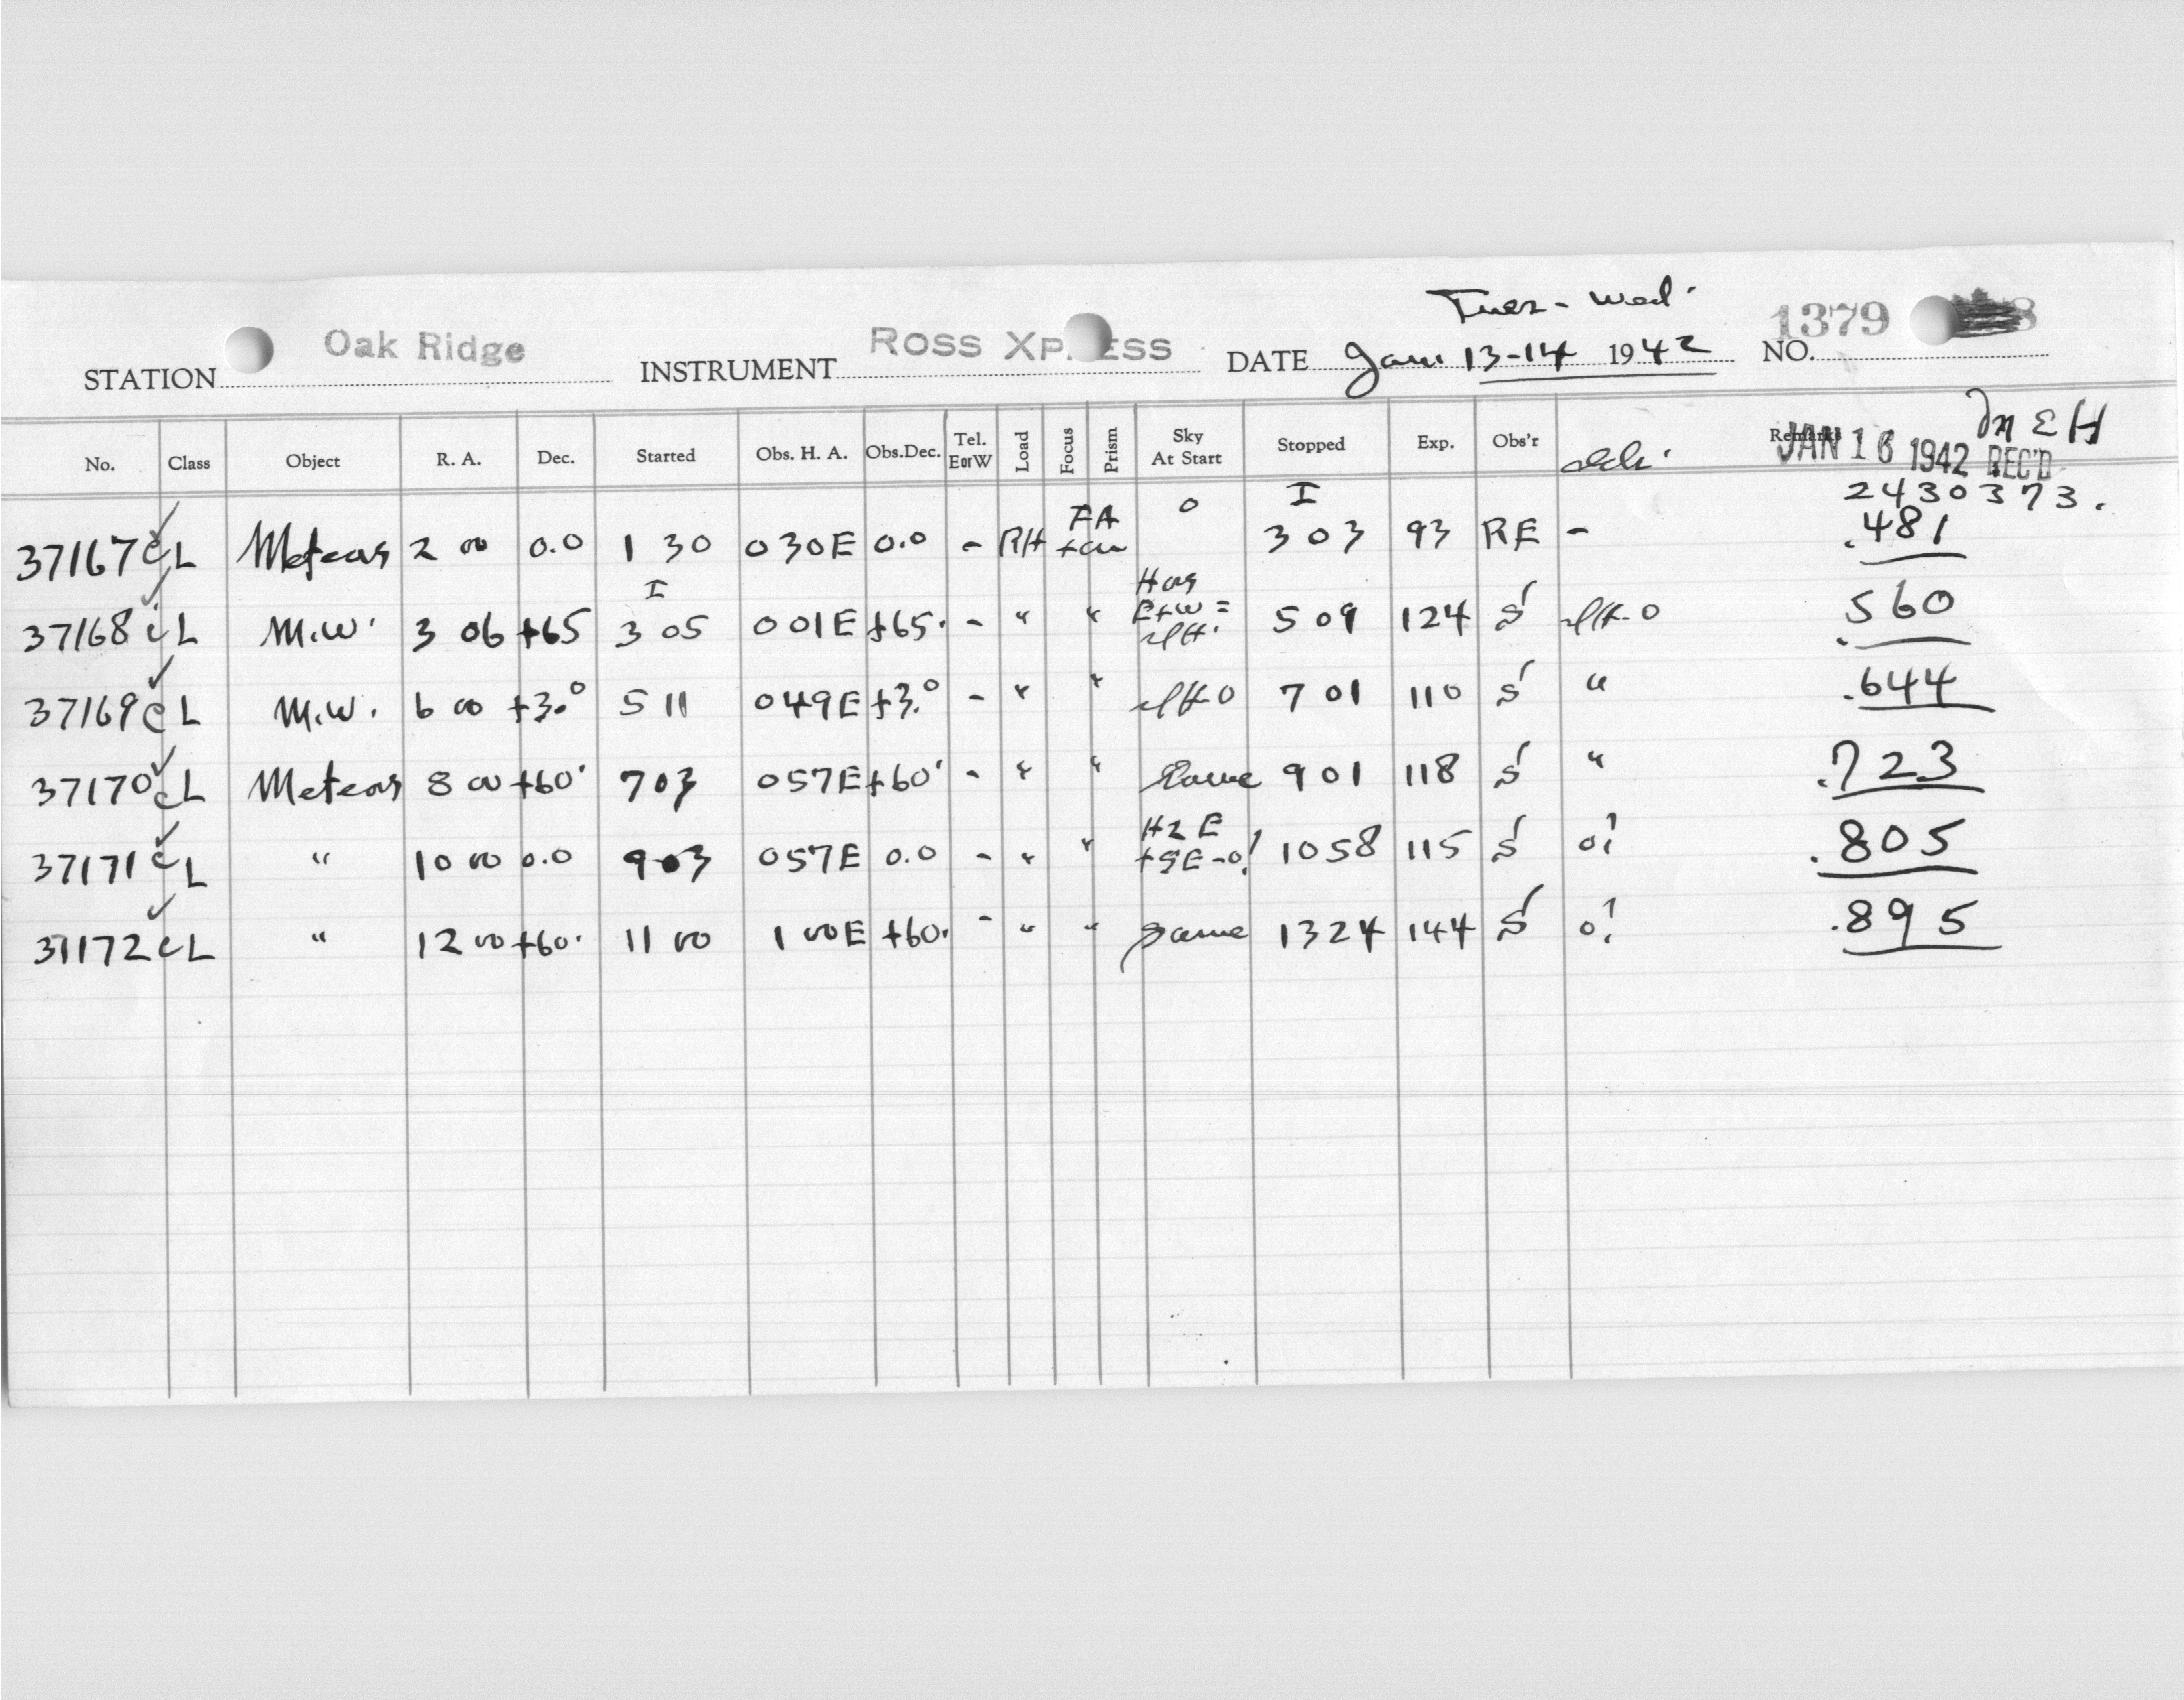 Tues - Wed.
STATION Oak Ridge INSTRUMENT ROSS XP ESS DATE Jan 13-14 1942 NO. 1379
MEH
No. Class Object R. A. Dec. Started Obs. H. A. Obs.Dec. Tel. EorW Load Focus Prism Sky At Start Stopped Exp. Obs'r Remarks
JAN 16 1942 REC'D
2430373.
37167 c L Meteors 2 00 0.0 1 30 030E 0.0 - RH FA 0 I 303 93 RE - .481
37168 c L M.W. 3 06 +65 I 305 001E +65. - " " E+W = 509 124 S .560
37169 c L M.W. 6 00 +3.0 511 049E +3.0 - " " 701 110 S " .644
37170 c L Meteors 8 00 +60. 703 057E +60. - " " Same 901 118 S " .723
37171 c L " 10 00 0.0 903 057E 0.0 - " " 1058 115 S 0! .805
37172 c L " 12 00 +60. 11 00 1 00E +60. - " " same 1324 144 S 0! .895